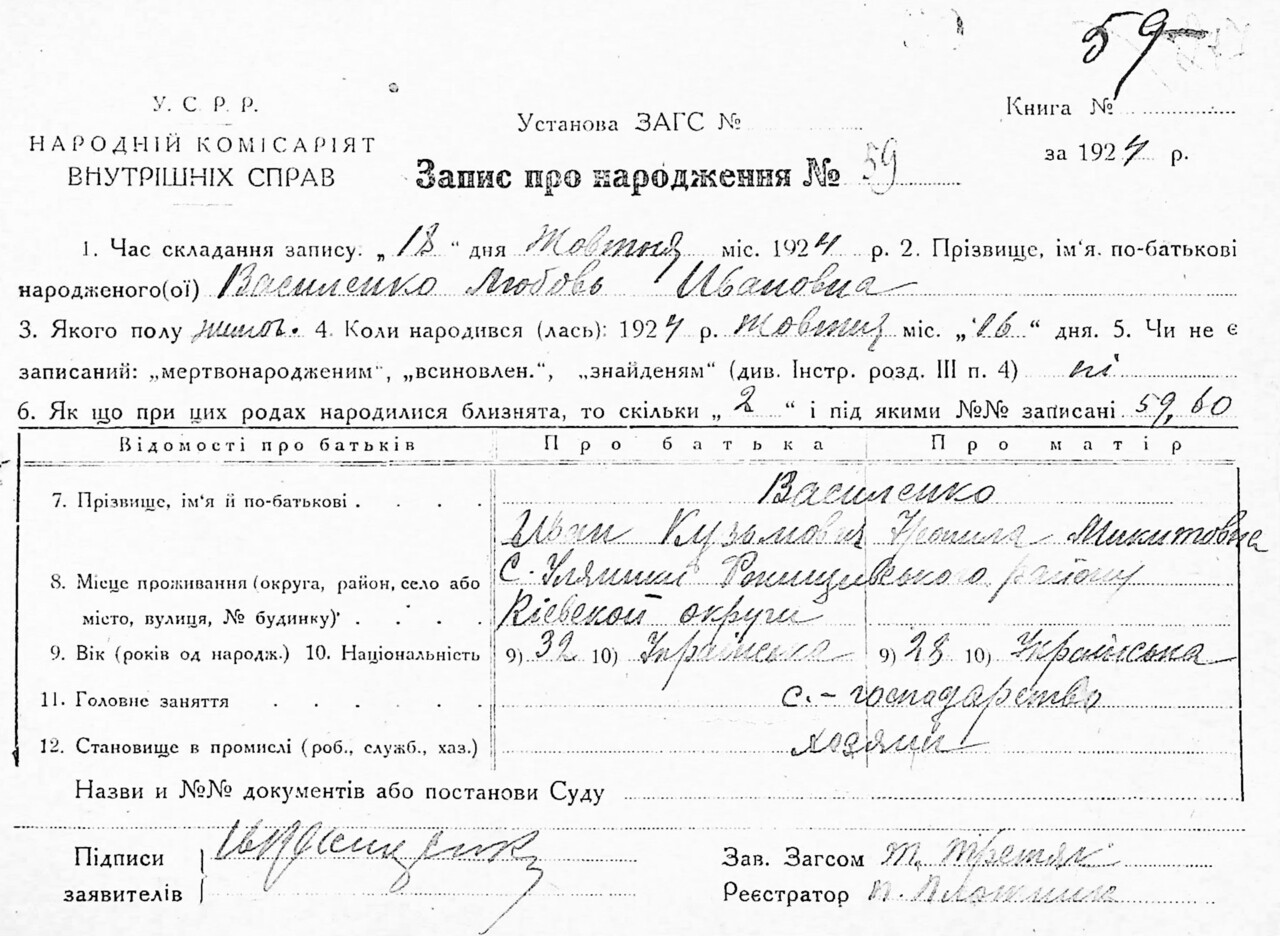 59
У. С. Р. Р.
НАРОДНІЙ КОМІСАРІЯТ
ВНУТРІШНІХ СПРАВ
Установа ЗАГС №
Запис про народження № 59
Книга №
за 1924 р.
1. Час складання запису. „18“ дня Жовтня міс. 1924 р. 2. Прізвище, ім'я. по-батькові
народженого(ої) Василенко Любовь Ивановна
3. Якого полу жиноч. 4. Коли народився (лась): 1924 р. Жовтня міс. „16“ дня. 5. Чи не є
записаний: „мертвонародженим“, „всиновлен.“, „знайденям“ (див. Інстр. розд. III п. 4) ні
6. Як що при цих родах народилися близнята, то скільки „2“ і під якими №№ записані 59, 60
Відомості про батьків Про батька Про матір
7. Прізвище, ім'я й по-батькові . . . . Василенко
Иван Кузьмович Микитовна
8. Місце проживання (округа, район, село або с. району
місто, вулиця, № будинку) . . . . Кіевской округи
9. Вік (років од народж.) 10. Національність 9) 32 10) Українська 9) 28 10) Українська
11. Головне заняття . . . . . с.-господарство
12. Становище в промислі (роб., служб., хаз.)
Назви и №№ документів або постанови Суду
Підписи
заявителів
Зав. Загсом Т. Третяк
Реєстратор